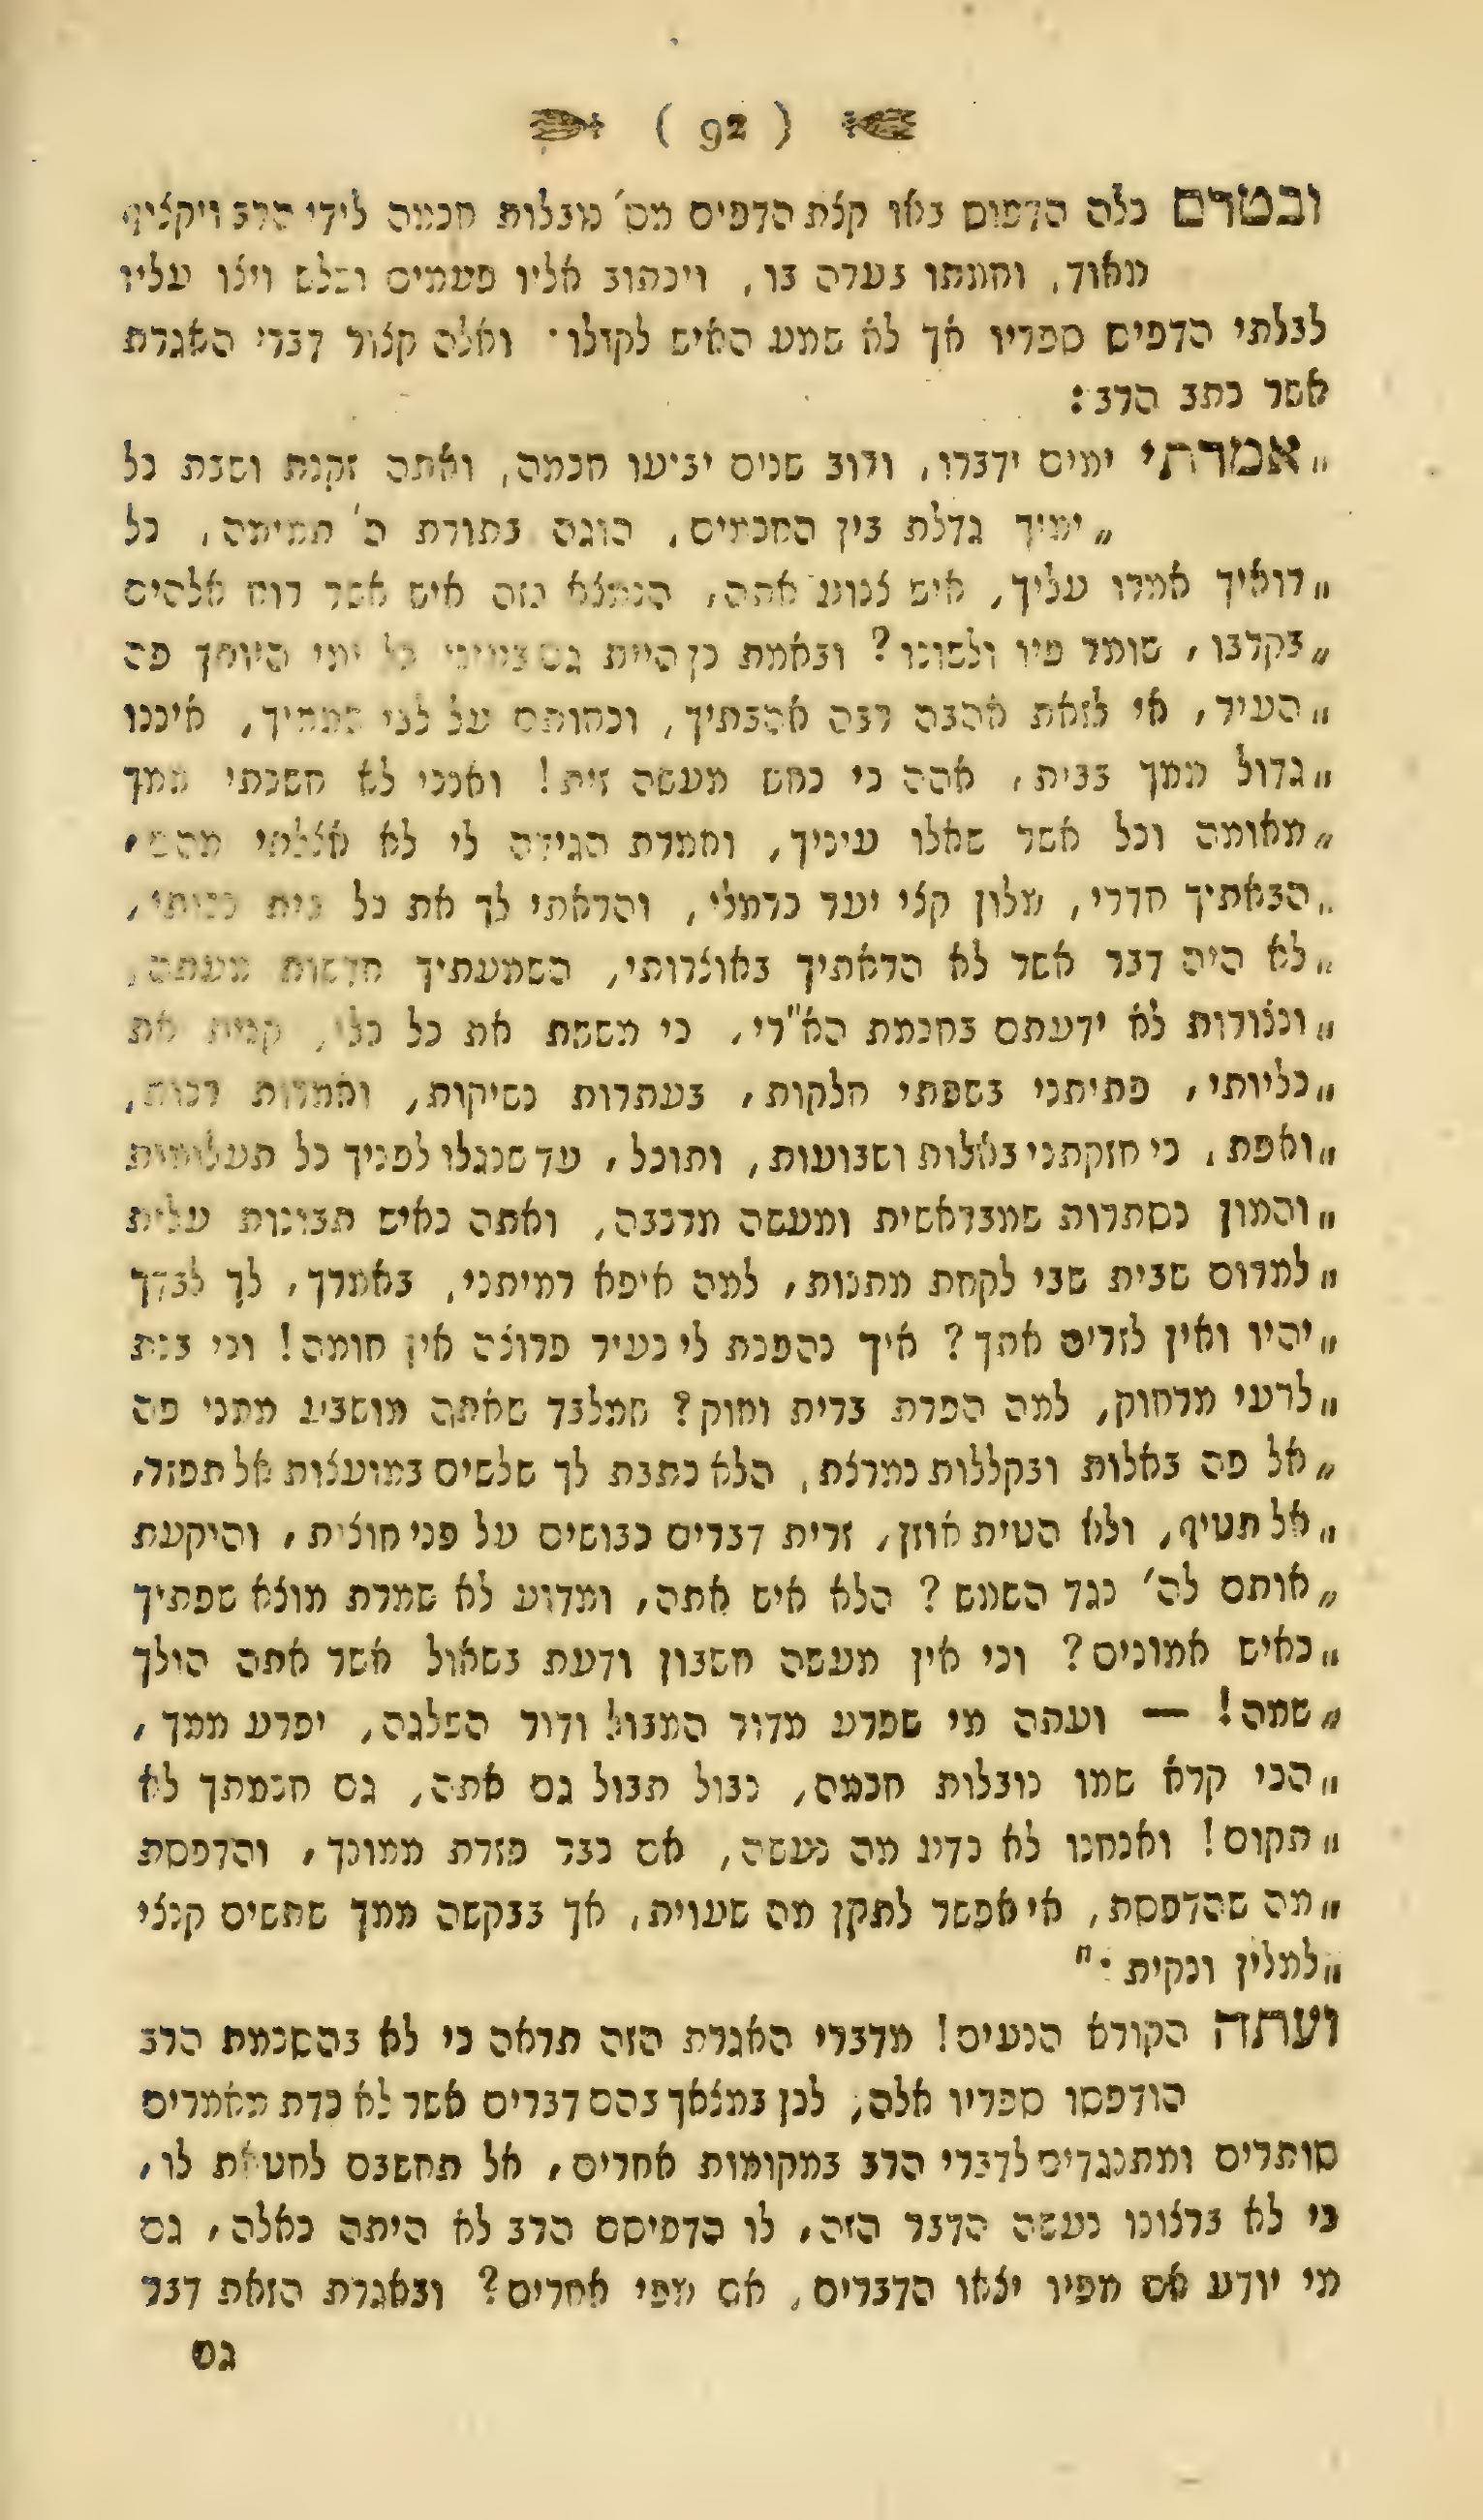 ( 92 )
ובטרם כלה הדפוס באו קצת הדפים מס׳ נובלות חכמה לידי הרב ויקציף
מאוד, וחמתו בערה בו, ויכתוב אליו פעמים ושלש ויצו עליו
לבלתי הדפיס ספריו אך לא שמע האיש לקולו· ואלה קצור דברי האגרת
אשר כתב הרב:
„אמרתי ימים ידברו, ורוב שנים יביעו חכמה, ואתה זקנת ושבת כל
„ימיך גדלת בין החכמים, הוגה בתורת ה׳ תמימה, כל
„רואיך אמרו עליך, איש צנוע אתה, הנמצא כזה איש אשר רוח אלהים
„בקרבו, שומר פיו ולשונו? ובאמת כן היית גם בעיני כל ימי היותך פה
„העיר, אי לזאת אהבה רבה אהבתיך, וכחותם על לבי שמתיך, איננו
„גדול ממך בבית, אהה כי נחש מעשה זית! ואנכי לא חשכתי ממך
„מאומה וכל אשר שאלו עיניך, ואמרת הגידה לי לא אצלתי מהם,
„הבאתיך חדרי, מלון קצי יער כרמלי, והראתי לך את כל בית נכותי,
„לא היה דבר אשר לא הראתיך באוצרותי, השמעתיך חדשות מעתה,
„ונצורות לא ידעתם בחכמת הא״רי, כי מששת את כל כלי, קנית את
„כליותי, פתיתני בשפתי חלקות, בעתרות נשיקות, ואמרות רכות,
„ואפת, כי חזקתני באלות ושבועות, ותוכל, עד שנגלו לפניך כל תעלומות
„והמון נסתרות שמבראשית ומעשה מרכבה, ואתה כאיש תבונות עלית
„למרום שבית שבי לקחת מתנות, למה איפא רמיתני, באמרך, לך לבדך
„יהיו ואין לזרים אתך? איך נהפכת לי כעיר פרוצה אין חומה! וכי בנת
„לרעי מרחוק, למה הפרת ברית וחוק? שמלבד שאתה מושביע ממני פה
„אל פה באלות ובקללות נמרצת, הלא כתבת לך שלשים במועצות אל תפזר,
„אל תטיף, ולא הטית אוזן, זרית דברים כבושים על פני חוצות, והיקעת
„אותם לה׳ נגד השמש? הלא איש אתה, ומדוע לא שמרת מוצא שפתיך
„כאיש אמונים? וכי אין מעשה חשבון ודעת בשאול אשר אתה הולך
„שמה! — ועתה מי שפרע מדור המבול ודור הפלגה, יפרע ממך,
„הכי קרא שמו נובלות חכמה, נבול תבול גם אתה, גם חכמתך לא
„תקום! ואנחנו לא נדע מה נעשה, אם כבר פזרת ממונך, והדפסת
„מה שהדפסת, אי אפשר לתקן מה שעוית, אך בבקשה ממך שתשים קנצי
„למלין ונקית:״
ועתה הקורא הנעים! מדברי האגרת הזה תראה כי לא בהסכמת הרב
הודפסו ספריו אלה; לכן במצאך בהם דברים אשר לא כדת מאמרים
סותרים ומתנגדים לדברי הרב במקומות אחרים, אל תחשבם לחטאת לו,
כי לא ברצונו נעשה הדבר הזה, לו הדפיסם הרב לא היתה כאלה, גם
מי יודע אם מפיו יצאו הדברים, אם מפי אחרים? ובאגרת הזאת דבר
גם